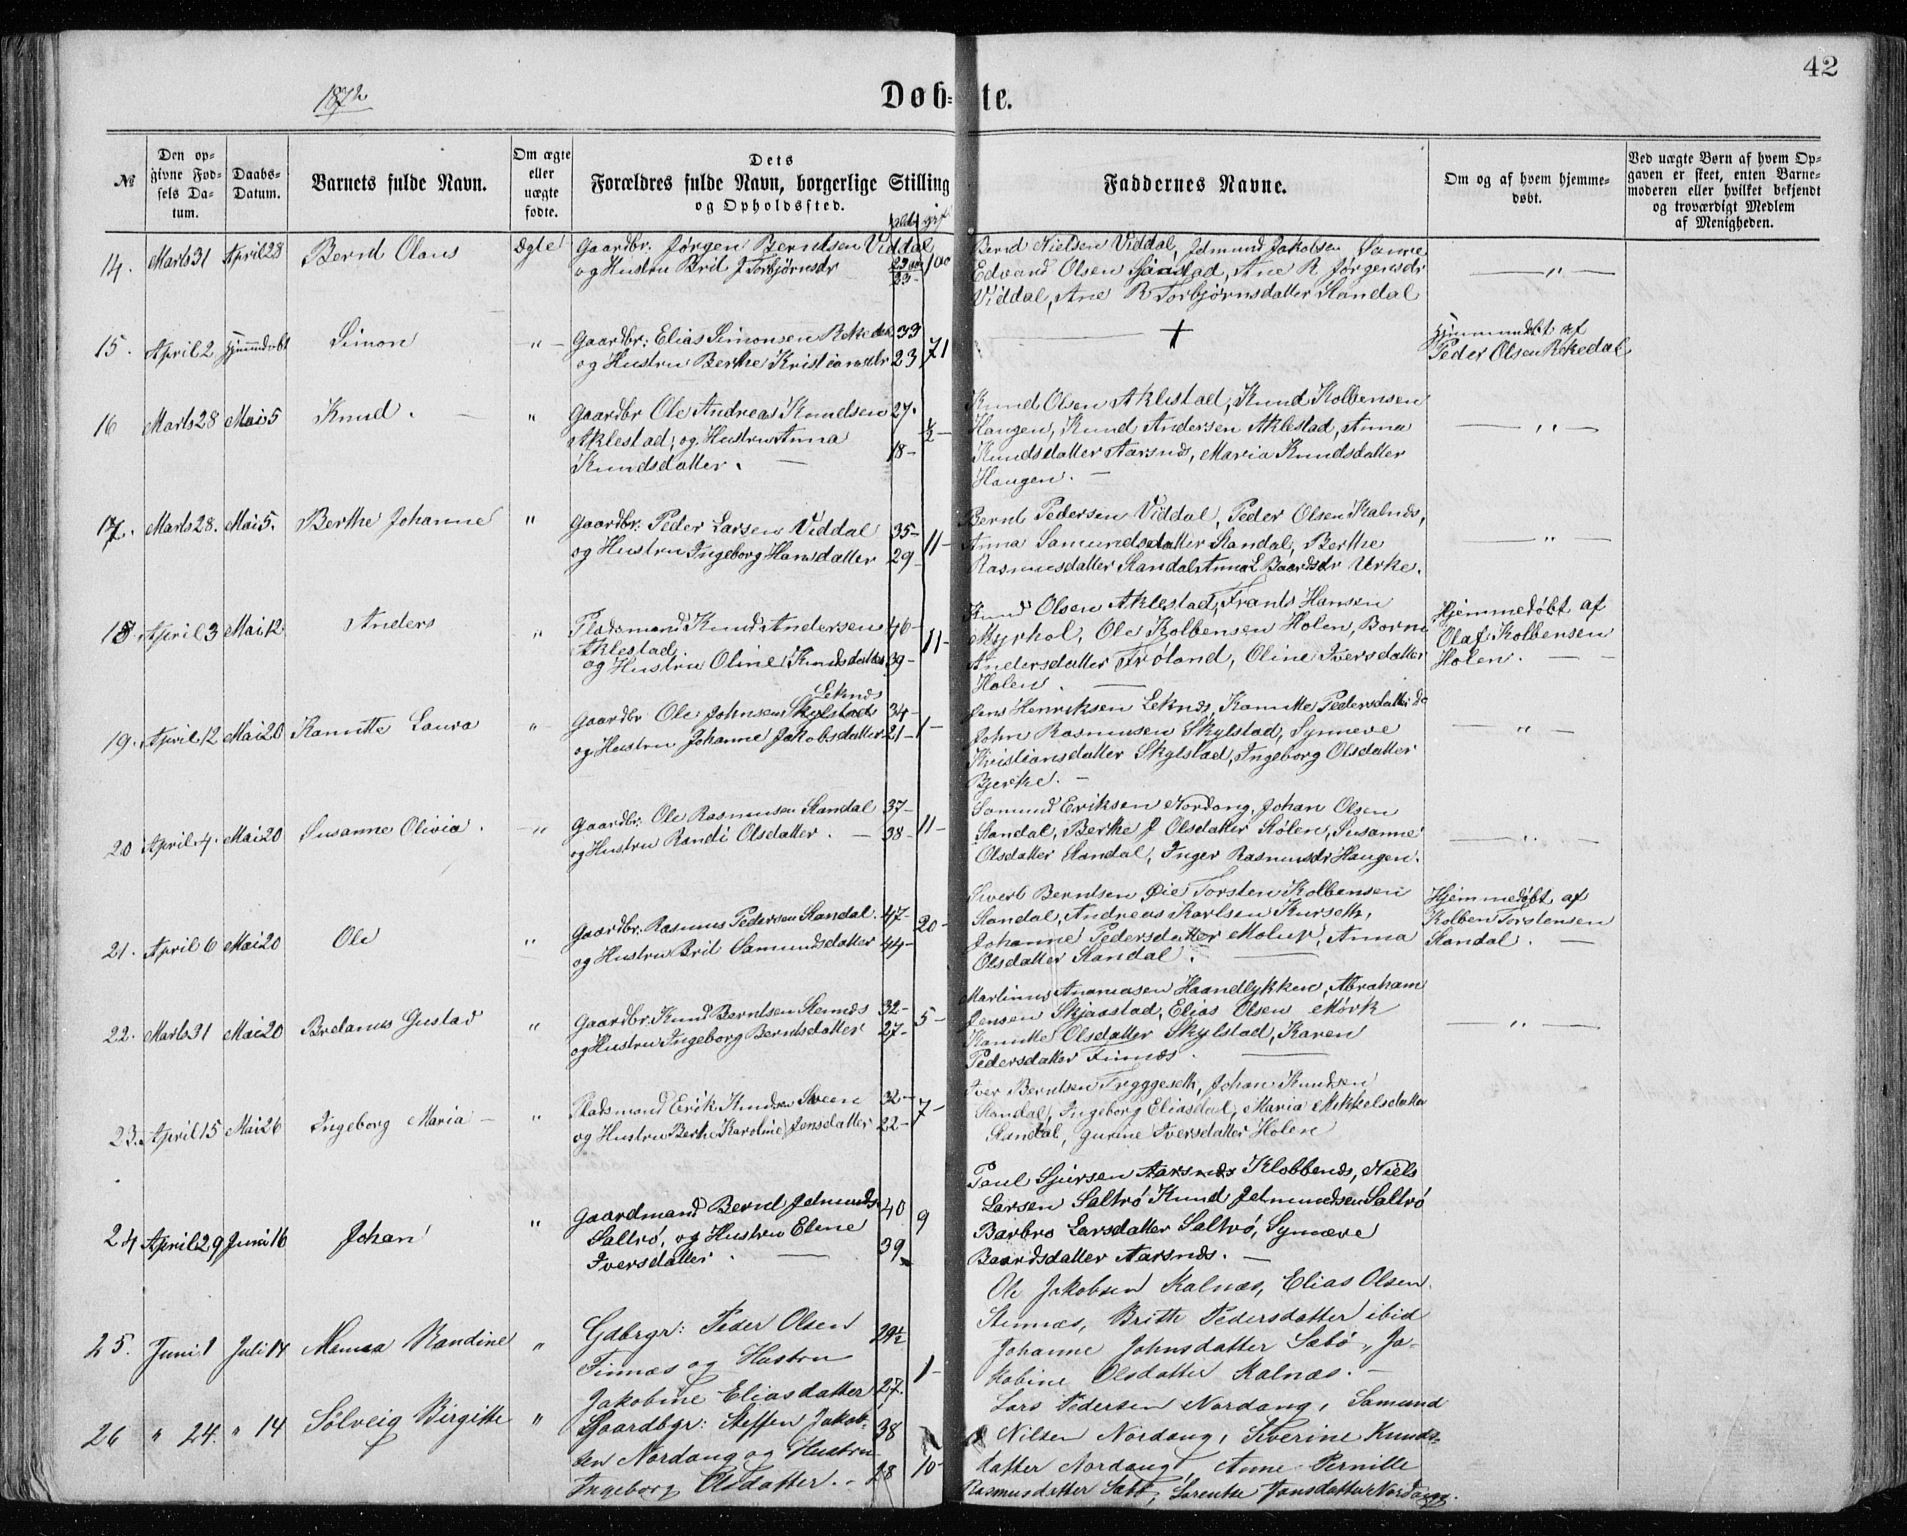 42
1872
Døbte.
№
Den opgivne Fødsels Datum.
Daabs-Datum.
Barnets fulde Navn.
Om ægte eller uægte fødte.
Dets Forældres fulde Navn, borgerlige Stilling og Opholdssted.
Faddernes Navne.
Om og af hvem hjemmedøbt.
Ved uægte Børn af hvem Opgaven er skeet, enten Barnemoderen eller hvilket bekjendt og troværdigt Medlem af Menigheden.
14. Marts 31 April 28 Bernd Olaus Ægte
Gaardbr. Jørgen Berntsen Viddal
og Hustru Brit J Torbjørnsdr
Bernd Nielsen Viddal, Jdmund Jakobsen
Edvard Olsen Ane R Jørgensdr
Viddal, Ane R Torbjørnsdatter Standal
— " —
15. April 2 Hjemmedøbt Simon " 
Gaardbr: Elias Simonsen Rekedal 33
og Hustru Berthe Kristiansdr 23 71
†
Hjemmedøbt af
Peder Olsen Rekedal
16 Marts 28 Mai 5 Knud. "
Gaardbr Ole Andreas Knudsen 27.
Aklestad, og Hustru Anna ½
Knudsdatter. — 18-
Knud Olsen Aklestad, Knud Kolbensen
Haugen, Knud Andersen Aklestad, Anna
Knudsdatter Aarsnæs, Maria Knudsdatter
Haugen. —
— " —
17. Marts 28. Mai 5. Berthe Johanne "
Gaardbr. Peder Larsen Viddal 35-
og Hustru Ingeborg Hansdatter 29- 11-
Bernt Pedersen Viddal, Peder Olsen Kalnæs,
Anna Samundsdatter Standal, Berthe
Rasmusdatter Standal Anna L Baardsdr Urke.
— " —
18. April 3 Mai 12 Anders "
Pladsmand Knud Andersen 40-
Aklestad.
og Hustru Oline Knudsdatter 39- 11-
Knud Olsen Aklestad, Frants Hansen
Myrhol, Ole Kolbensen Holen, Borni
Andersdatter Frøland, Oline Iversdatter
Holen. —
Hjemmedøbt af
Olaf Kolbensen
Holen. —
19. April 12 Mai 20 Kanutte Laura "
Leknæs
Gaardbr Ole Johnsen Skylstad 34-
og Hustru Johanne Jakobsdatter 21- 1-
Jens Henriksen Leknæs, Kanutte Pedersdatter do
John Rasmusen Skylstad, Synneve
Kristiansdatter Skylstad, Ingeborg Olsdatter
Bjerke. —
" —
20 April 4. Mai 20 Susanne Olivia. "
Gaardbr: Ole Rasmusen Standal 37-
og Hustru Randi Olsdatter. — 38- 11-
Samund Eriksen Nordang, Johan Olsen
Standal, Berthe J Olsdatter Stølen, Susanne
Olsdatter Standal, Inger Rasmusdr Haugen.
— " —
21. April 6 Mai 20 Ole "
Gaardbr. Rasmus Pedersen Standal. 47-
og Hustru Brit Samundsdatter 44- 20-
Sivert Berntsen Øie Torsten Kolbensen
Standal, Andreas Karlsen Kurseth,
Johanne Pedersdatter Molup, Anna
Olsdatter Standal.
Hjemmedøbt af
Kolben Torstensen
Standal. —
22. Marts 31 Mai 20 Bretanus Gustav "
Gaardbr. Knud Berntsen Stennæs 32-
og Hustru Ingeborg Berntsdatter 27- 5-
Martinus Ananiasen Haandlykken, Abraham
Jensen Skjaastad, Elias Olsen Mørk
Kanutte Olsdatter Skylstad, Karen
Pedersdatter Finnæs. —
— " —
23. April 15 Mai 26 Ingeborg Maria — "
Pladsmand Erik Knudsen Steen 32-
og Hustru Berthe Karoline Jensdatter 22- 7-
Iver Berntsen Trygggeseth, Johan Knudsen
Standal, Ingeborg Eliasdal, Maria Mikkelsdatter
Standal, Gurine Iversdatter Holen
24 April 29 Juni 16 Johan "
Gaardmand Bernd Jdmunds. 40
Saltrø, og Hustru Elene 9
Iversdatter. — 39
Paul Sjursen Aarsnæs Klobbenæs, Niels
Larsen Saltrø Knud Jdmundsen Saltrø
Barbro Larsdatter Saltrø, Synnæve
Baardsdatter Aarsnæs. —
25. Juni 1 Juli 14 Randine "
Gdbrgr: Peder Olsen 29½
Finnæs og Hustru 1-
Jakobine Eliasdatter 27.
Ole Jakobsen Kalnæs, Elias Olsen
Stennæs, Brith Pedersdatter ibid
Johanne Johnsdatter Sæbø, Jakobine Olsdatter Kalnæs. —
26 " 24. " 14 Sølveig Birgitte "
Gaardbgr: Steffen Jakob- 38
sen Nordang og Hustru 10-
Ingeborg Olsdatter. — 28
Lars Pedersen Nordang, Samund
Nilsen Nordang, Severine Knuds-
datter Nordang, Anne Pernille
Rasmusdatter Sæbø, Larentse Jansdatter Nordang.